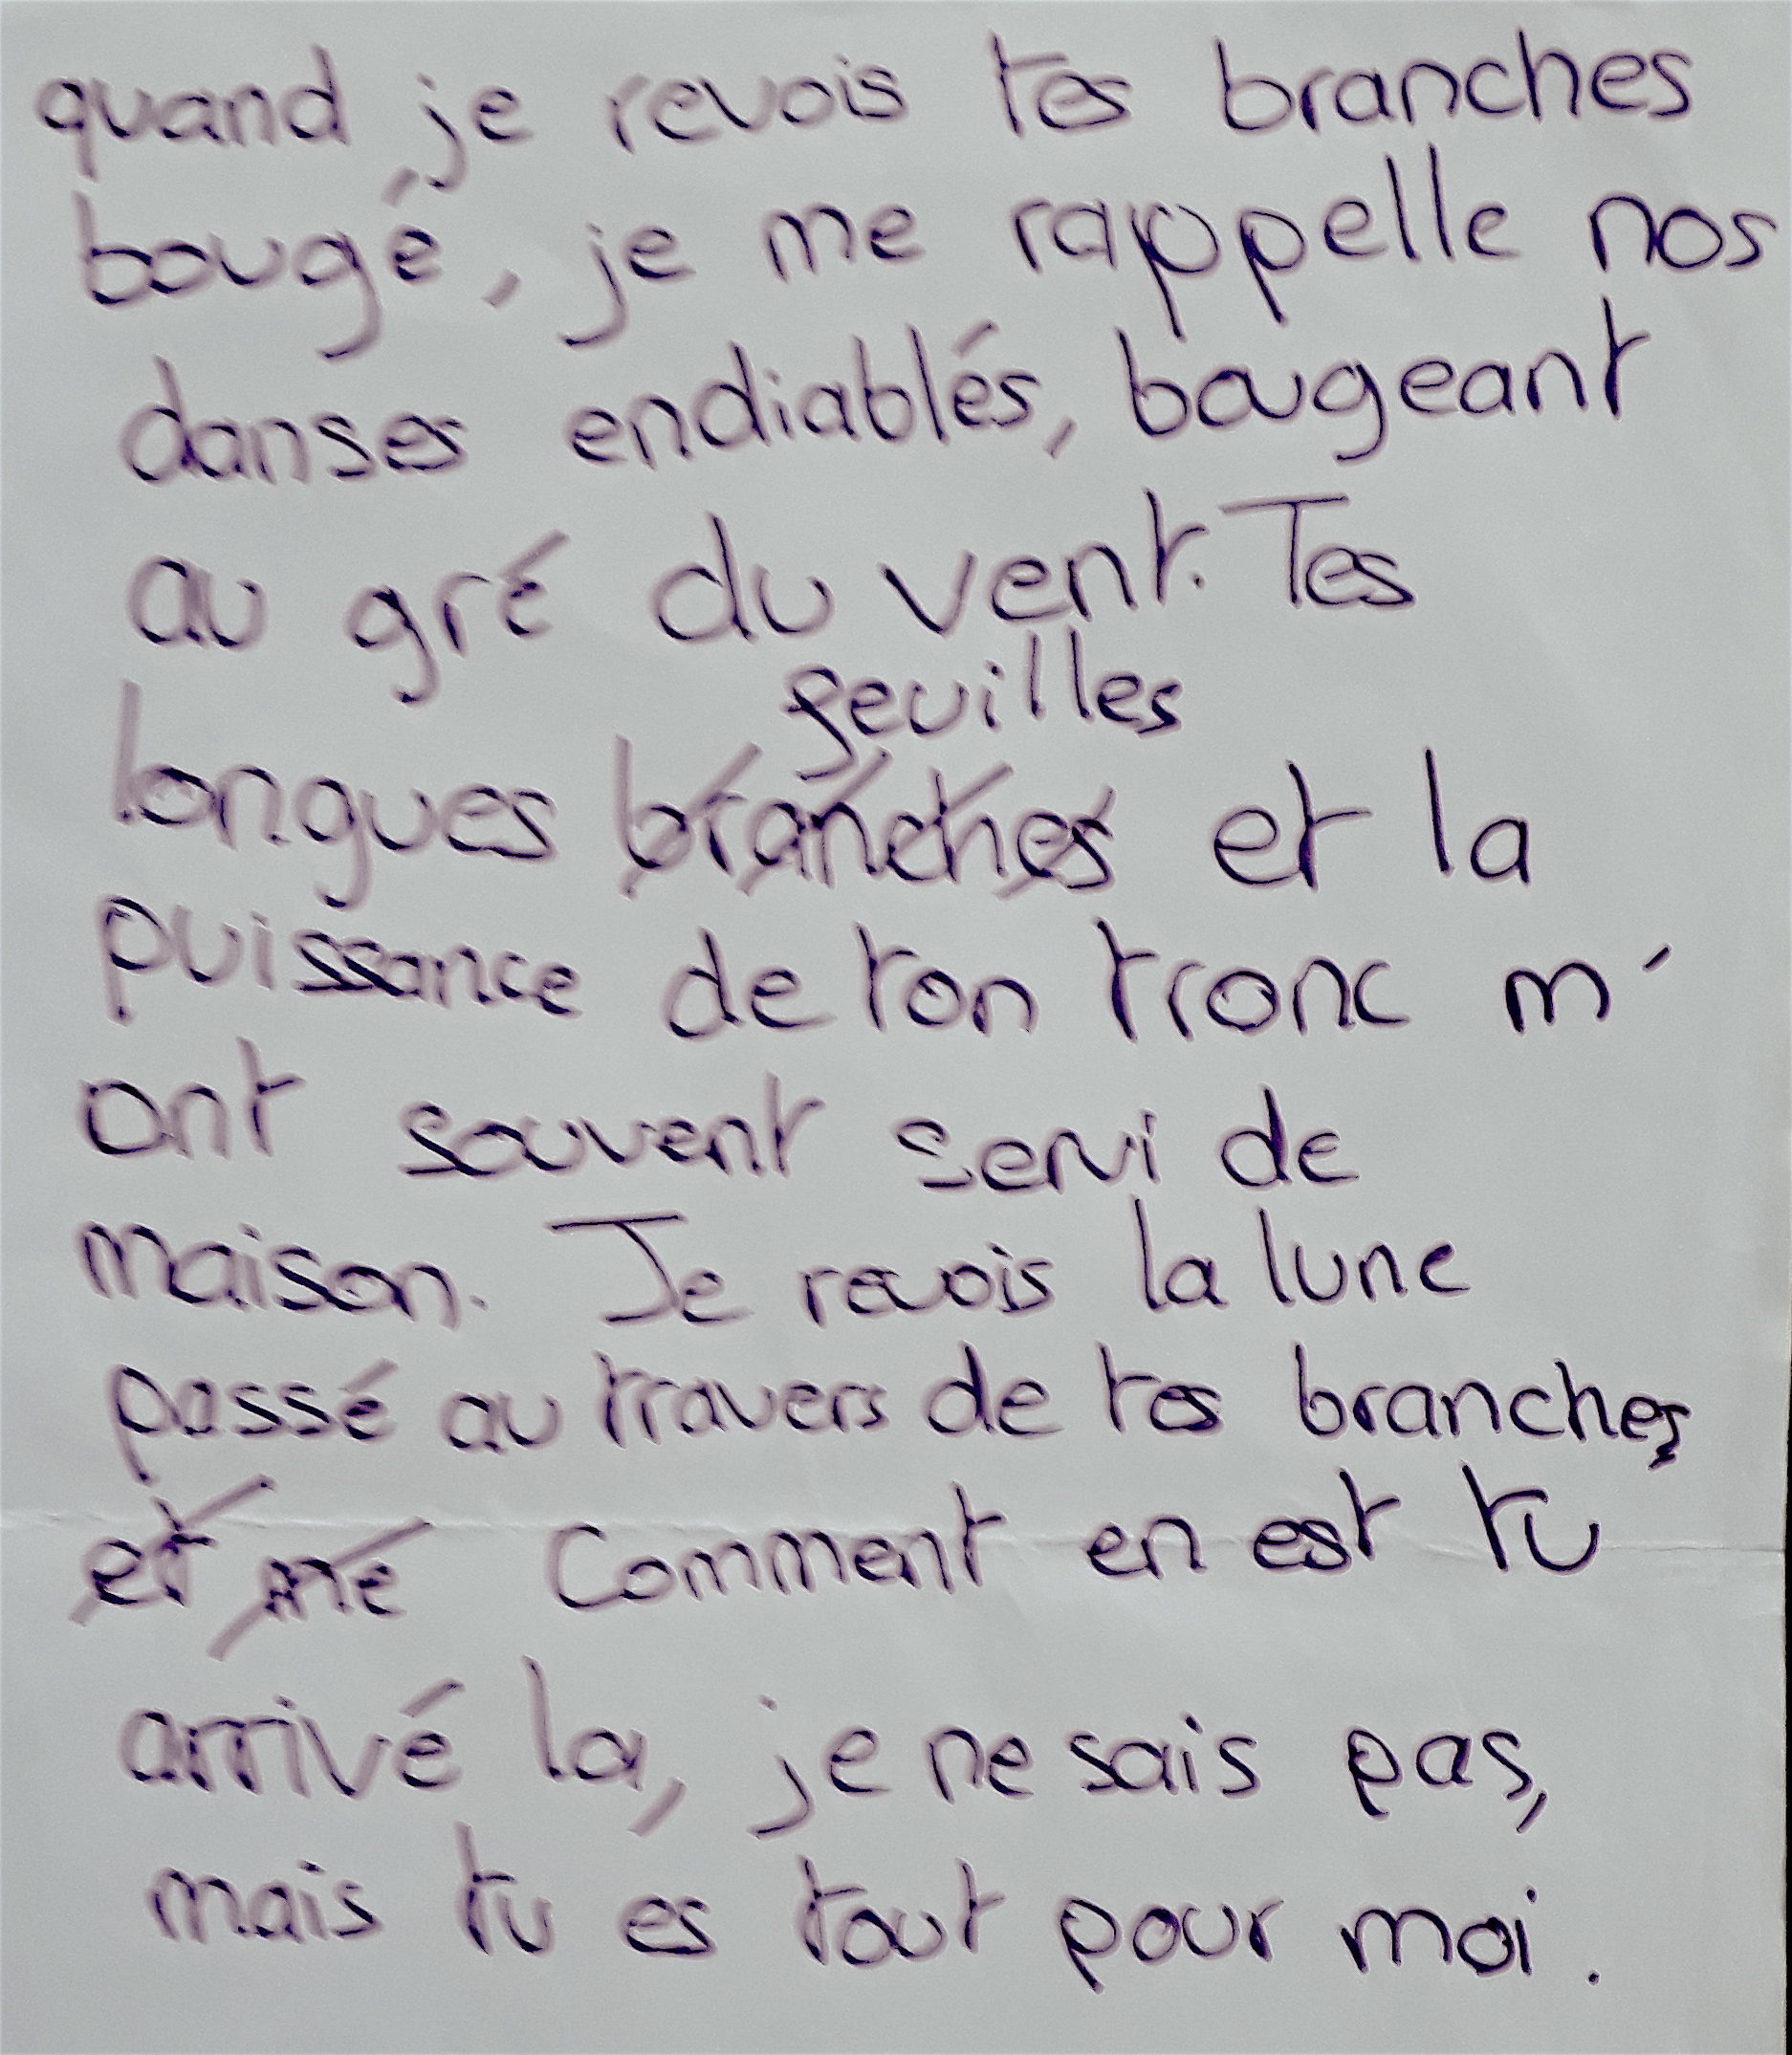 quand je revois tes branches
bougé, je me rappelle nos
danses endiablés, bougeant
au gré du vent. Tes
feuilles
longues branches et la
puissance de ton tronc m'
ont souvent servi de
maison. Je revois la lune
passé au travers de tes branches,
et me Comment en est tu
arrivé la, je ne sais pas,
mais tu es tout pour moi.